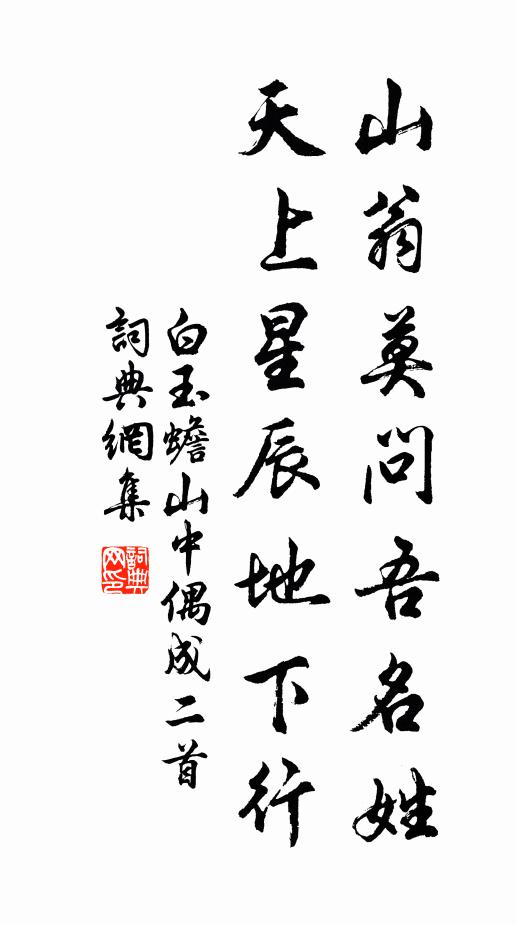 山翁莫問吾名姓
天上星辰地下行
白玉蟾山中偶成二首
詞典網集
詞典
网印